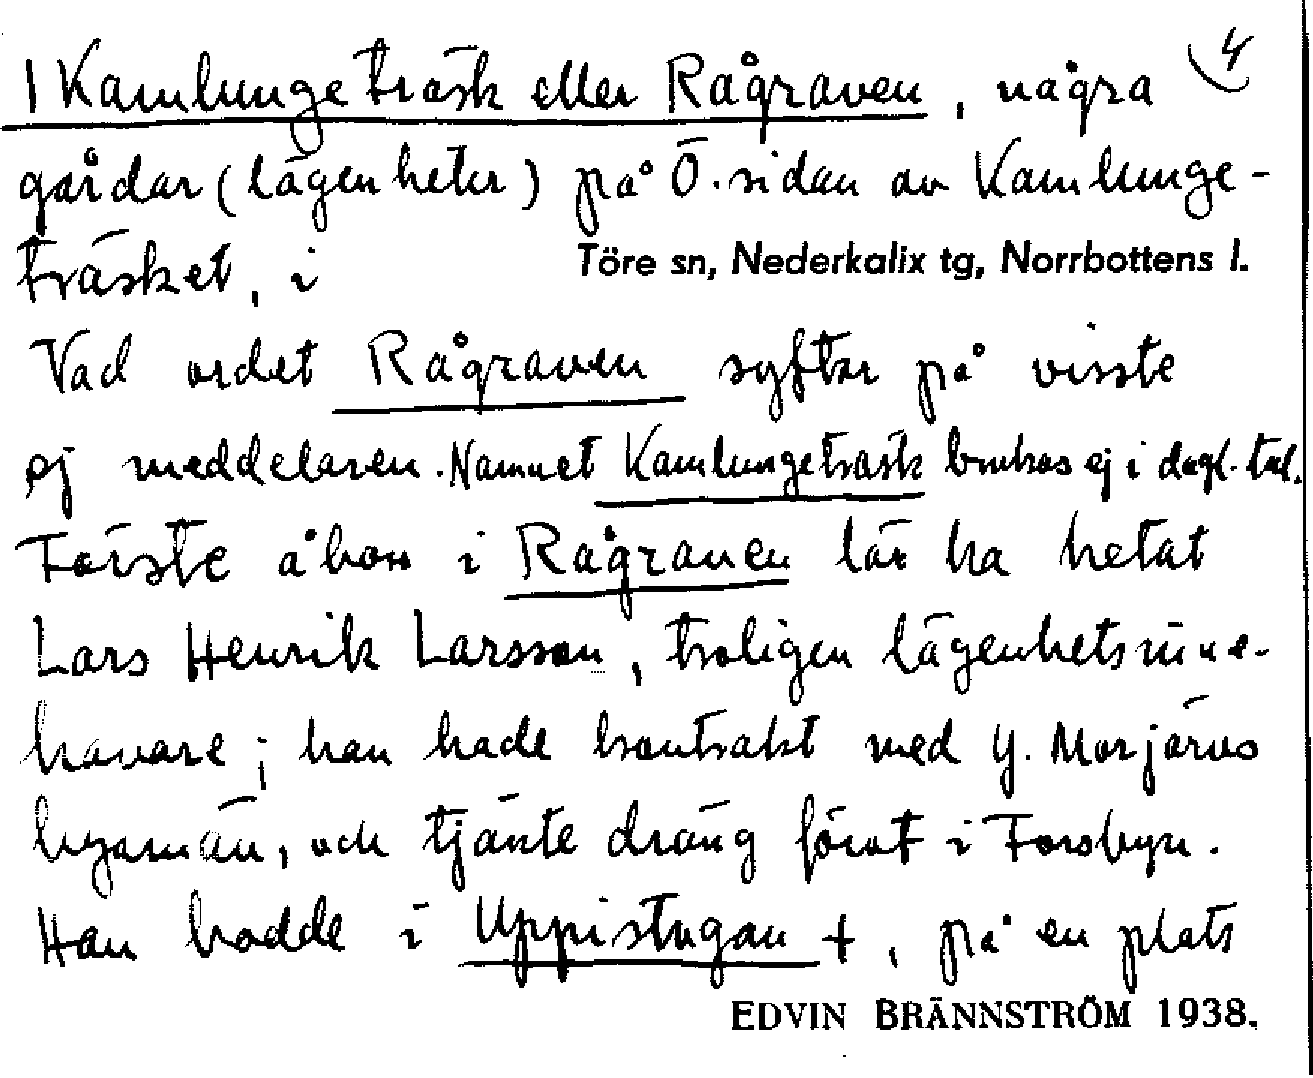 4
1 Kamlungeträsk eller Rågraven, några
gårdar (lägenheter) på Ö. sidan av Kamlunge-
träsket, i Töre sn, Nederkalix tg, Norrbottens l.
Vad ordet Rågraven syftar på visste
ej meddelaren. Namnet Kamlungeträsk brukas ej i dagl. tal.
Förste åbon i Rågraven lär ha hetat
Lars Henrik Larsson, troligen lägenhetsinne-
havare; han hade kontrakt med Y. Morjärvs
byamän, och tjänte dräng först i Forsbyn.
Han bodde i Uppistugan +, på en plats
EDVIN BRÄNNSTRÖM 1938.